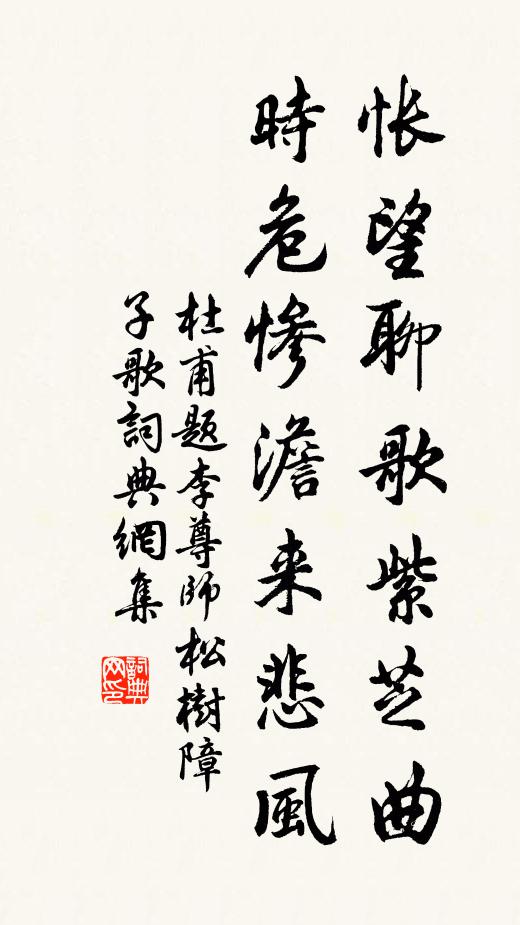 悵望聊歌紫芝曲
時危慘澹来悲風
杜甫題李尊師松樹障
子歌詞典網集
詞典网印